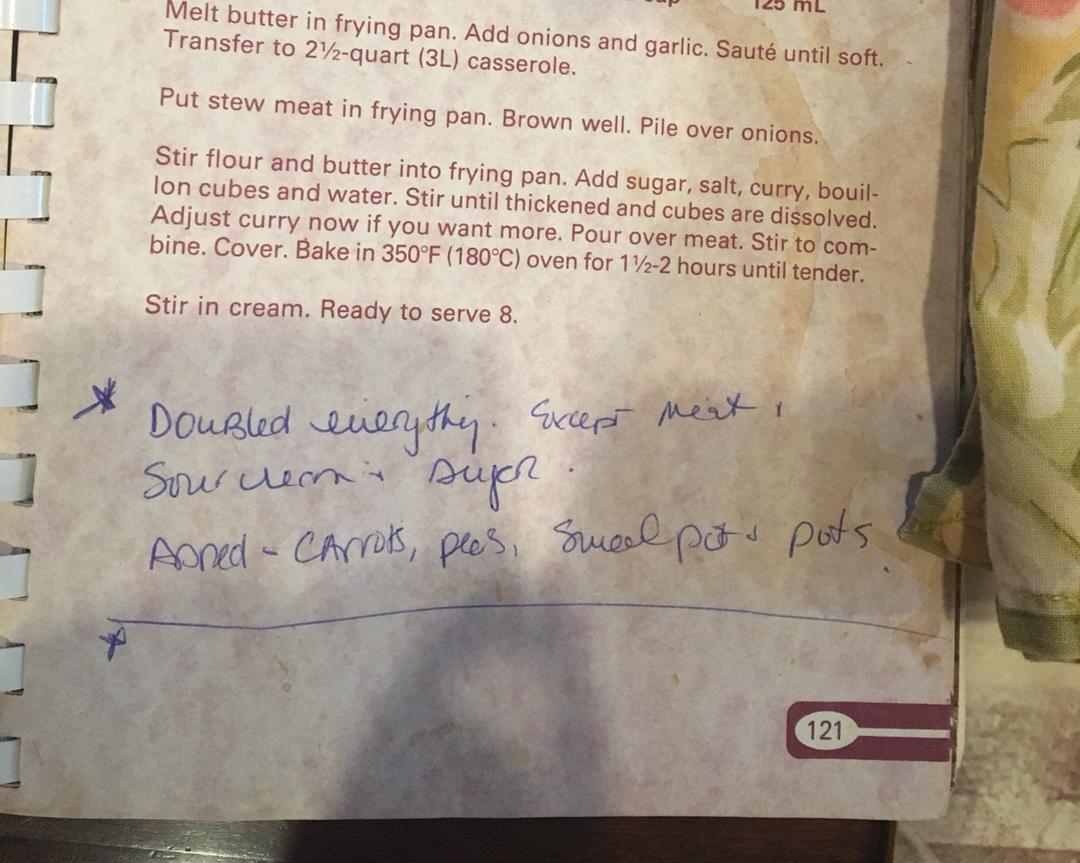 125 mL
Melt butter in frying pan. Add onions and garlic. Sauté until soft.
Transfer to 2½-quart (3L) casserole.
Put stew meat in frying pan. Brown well. Pile over onions.
Stir flour and butter into frying pan. Add sugar, salt, curry, bouil-
lon cubes and water. Stir until thickened and cubes are dissolved.
Adjust curry now if you want more. Pour over meat. Stir to com-
bine. Cover. Bake in 350°F (180°C) oven for 1½-2 hours until tender.
Stir in cream. Ready to serve 8.
* Doubled everything. Except meat,
Sour cream + Sugar.
Added - CArrots, peas, Sweet pot + pots.
*
121